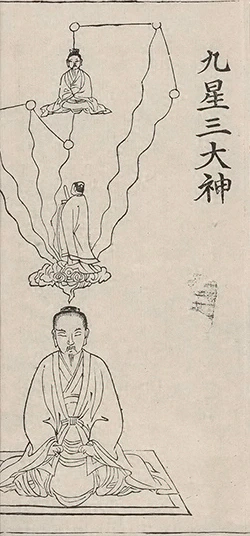 九星三大神